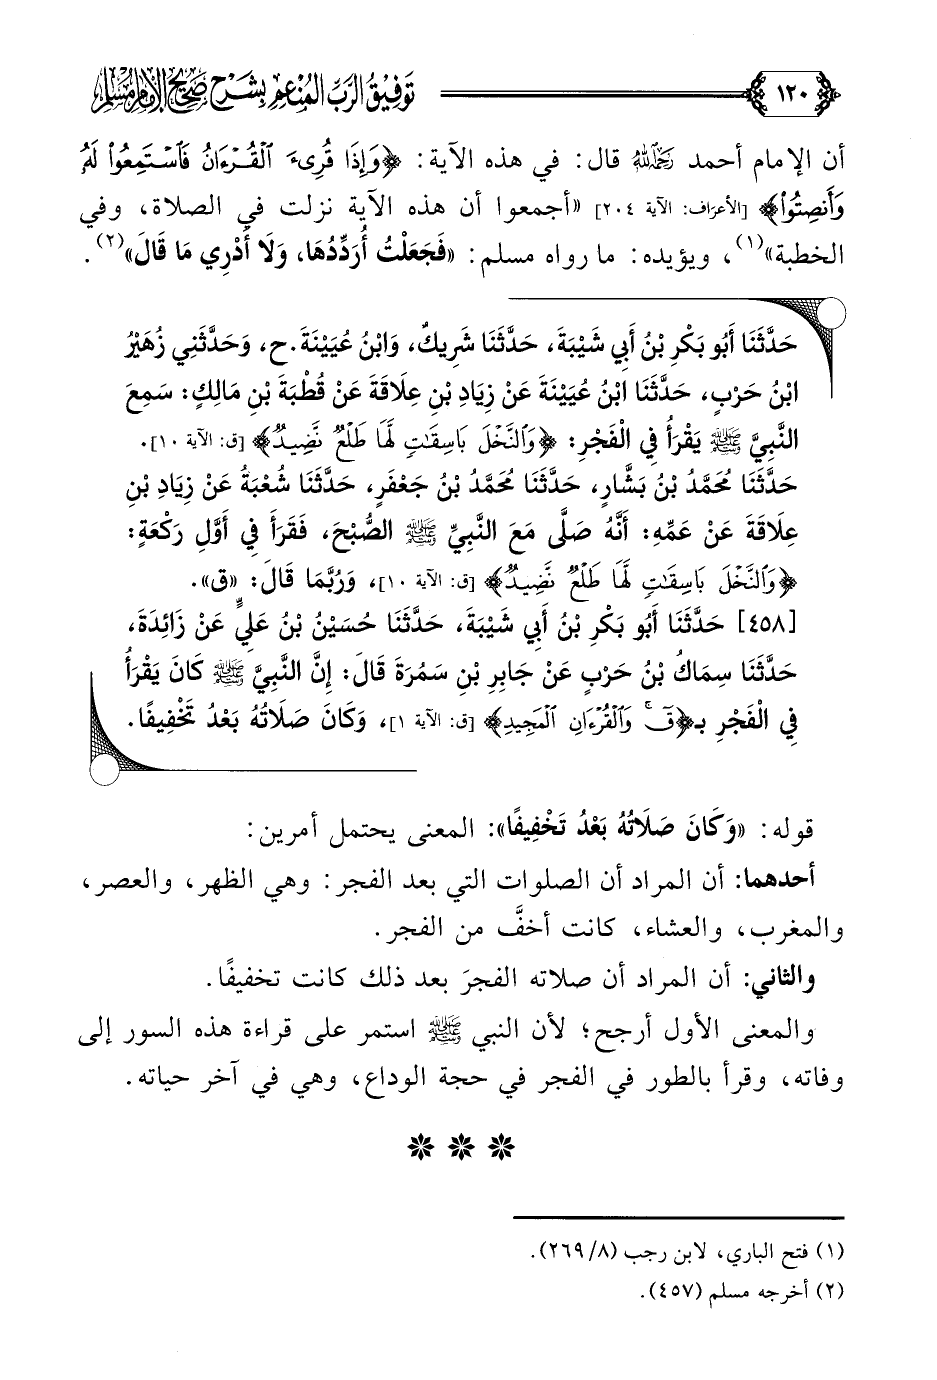 ١٢٠
توفيق الرب المنعم بشرح صحيح الإمام مسلم
أن الإمام أحمد رحمه الله قال: في هذه الآية: ﴿وَإِذَا قُرِئَ الْقُرْءَانُ فَاسْتَمِعُوا لَهُ
وَأَنصِتُوا﴾ [الأعراف: الآية ٢٠٤] «أجمعوا أن هذه الآية نزلت في الصلاة، وفي
الخطبة»(١)، ويؤيده: ما رواه مسلم: «فَجَعَلْتُ أُرَدِّدُهَا، وَلَا أَدْرِي مَا قَالَ»(٢).
حَدَّثَنَا أَبُو بَكْرِ بْنُ أَبِي شَيْبَةَ، حَدَّثَنَا شَرِيكٌ، وَابْنُ عُيَيْنَةَ. ح، وَحَدَّثَنِي زُهَيْرُ
ابْنُ حَرْبٍ، حَدَّثَنَا ابْنُ عُيَيْنَةَ عَنْ زِيَادِ بْنِ عِلَاقَةَ عَنْ قُطْبَةَ بْنِ مَالِكٍ: سَمِعَ
النَّبِيَّ ﷺ يَقْرَأُ فِي الْفَجْرِ: ﴿وَالنَّخْلَ بَاسِقَٰتٍ لَّهَا طَلْعٌ نَّضِيدٌ﴾ [ق: الآية ١٠].
حَدَّثَنَا مُحَمَّدُ بْنُ بَشَّارٍ، حَدَّثَنَا مُحَمَّدُ بْنُ جَعْفَرٍ، حَدَّثَنَا شُعْبَةُ عَنْ زِيَادِ بْنِ
عِلَاقَةَ عَنْ عَمِّهِ: أَنَّهُ صَلَّى مَعَ النَّبِيِّ ﷺ الصُّبْحَ، فَقَرَأَ فِي أَوَّلِ رَكْعَةٍ:
﴿وَالنَّخْلَ بَاسِقَٰتٍ لَّهَا طَلْعٌ نَّضِيدٌ﴾ [ق: الآية ١٠]، وَرُبَّمَا قَالَ: «ق».
[٤٥٨] حَدَّثَنَا أَبُو بَكْرِ بْنُ أَبِي شَيْبَةَ، حَدَّثَنَا حُسَيْنُ بْنُ عَلِيٍّ عَنْ زَائِدَةَ،
حَدَّثَنَا سِمَاكُ بْنُ حَرْبٍ عَنْ جَابِرِ بْنِ سَمُرَةَ قَالَ: إِنَّ النَّبِيَّ ﷺ كَانَ يَقْرَأُ
فِي الْفَجْرِ بـ﴿قٓ ۚ وَالْقُرْءَانِ الْمَجِيدِ﴾ [ق: الآية ١]، وَكَانَ صَلَاتُهُ بَعْدُ تَخْفِيفًا.
قوله: «وَكَانَ صَلَاتُهُ بَعْدُ تَخْفِيفًا»: المعنى يحتمل أمرين:
أحدهما: أن المراد أن الصلوات التي بعد الفجر: وهي الظهر، والعصر،
والمغرب، والعشاء، كانت أخفَّ من الفجر.
والثاني: أن المراد أن صلاته الفجرَ بعد ذلك كانت تخفيفًا.
والمعنى الأول أرجح؛ لأن النبي ﷺ استمر على قراءة هذه السور إلى
وفاته، وقرأ بالطور في الفجر في حجة الوداع، وهي في آخر حياته.
(١) فتح الباري، لابن رجب (٨/ ٢٦٩).
(٢) أخرجه مسلم (٤٥٧).